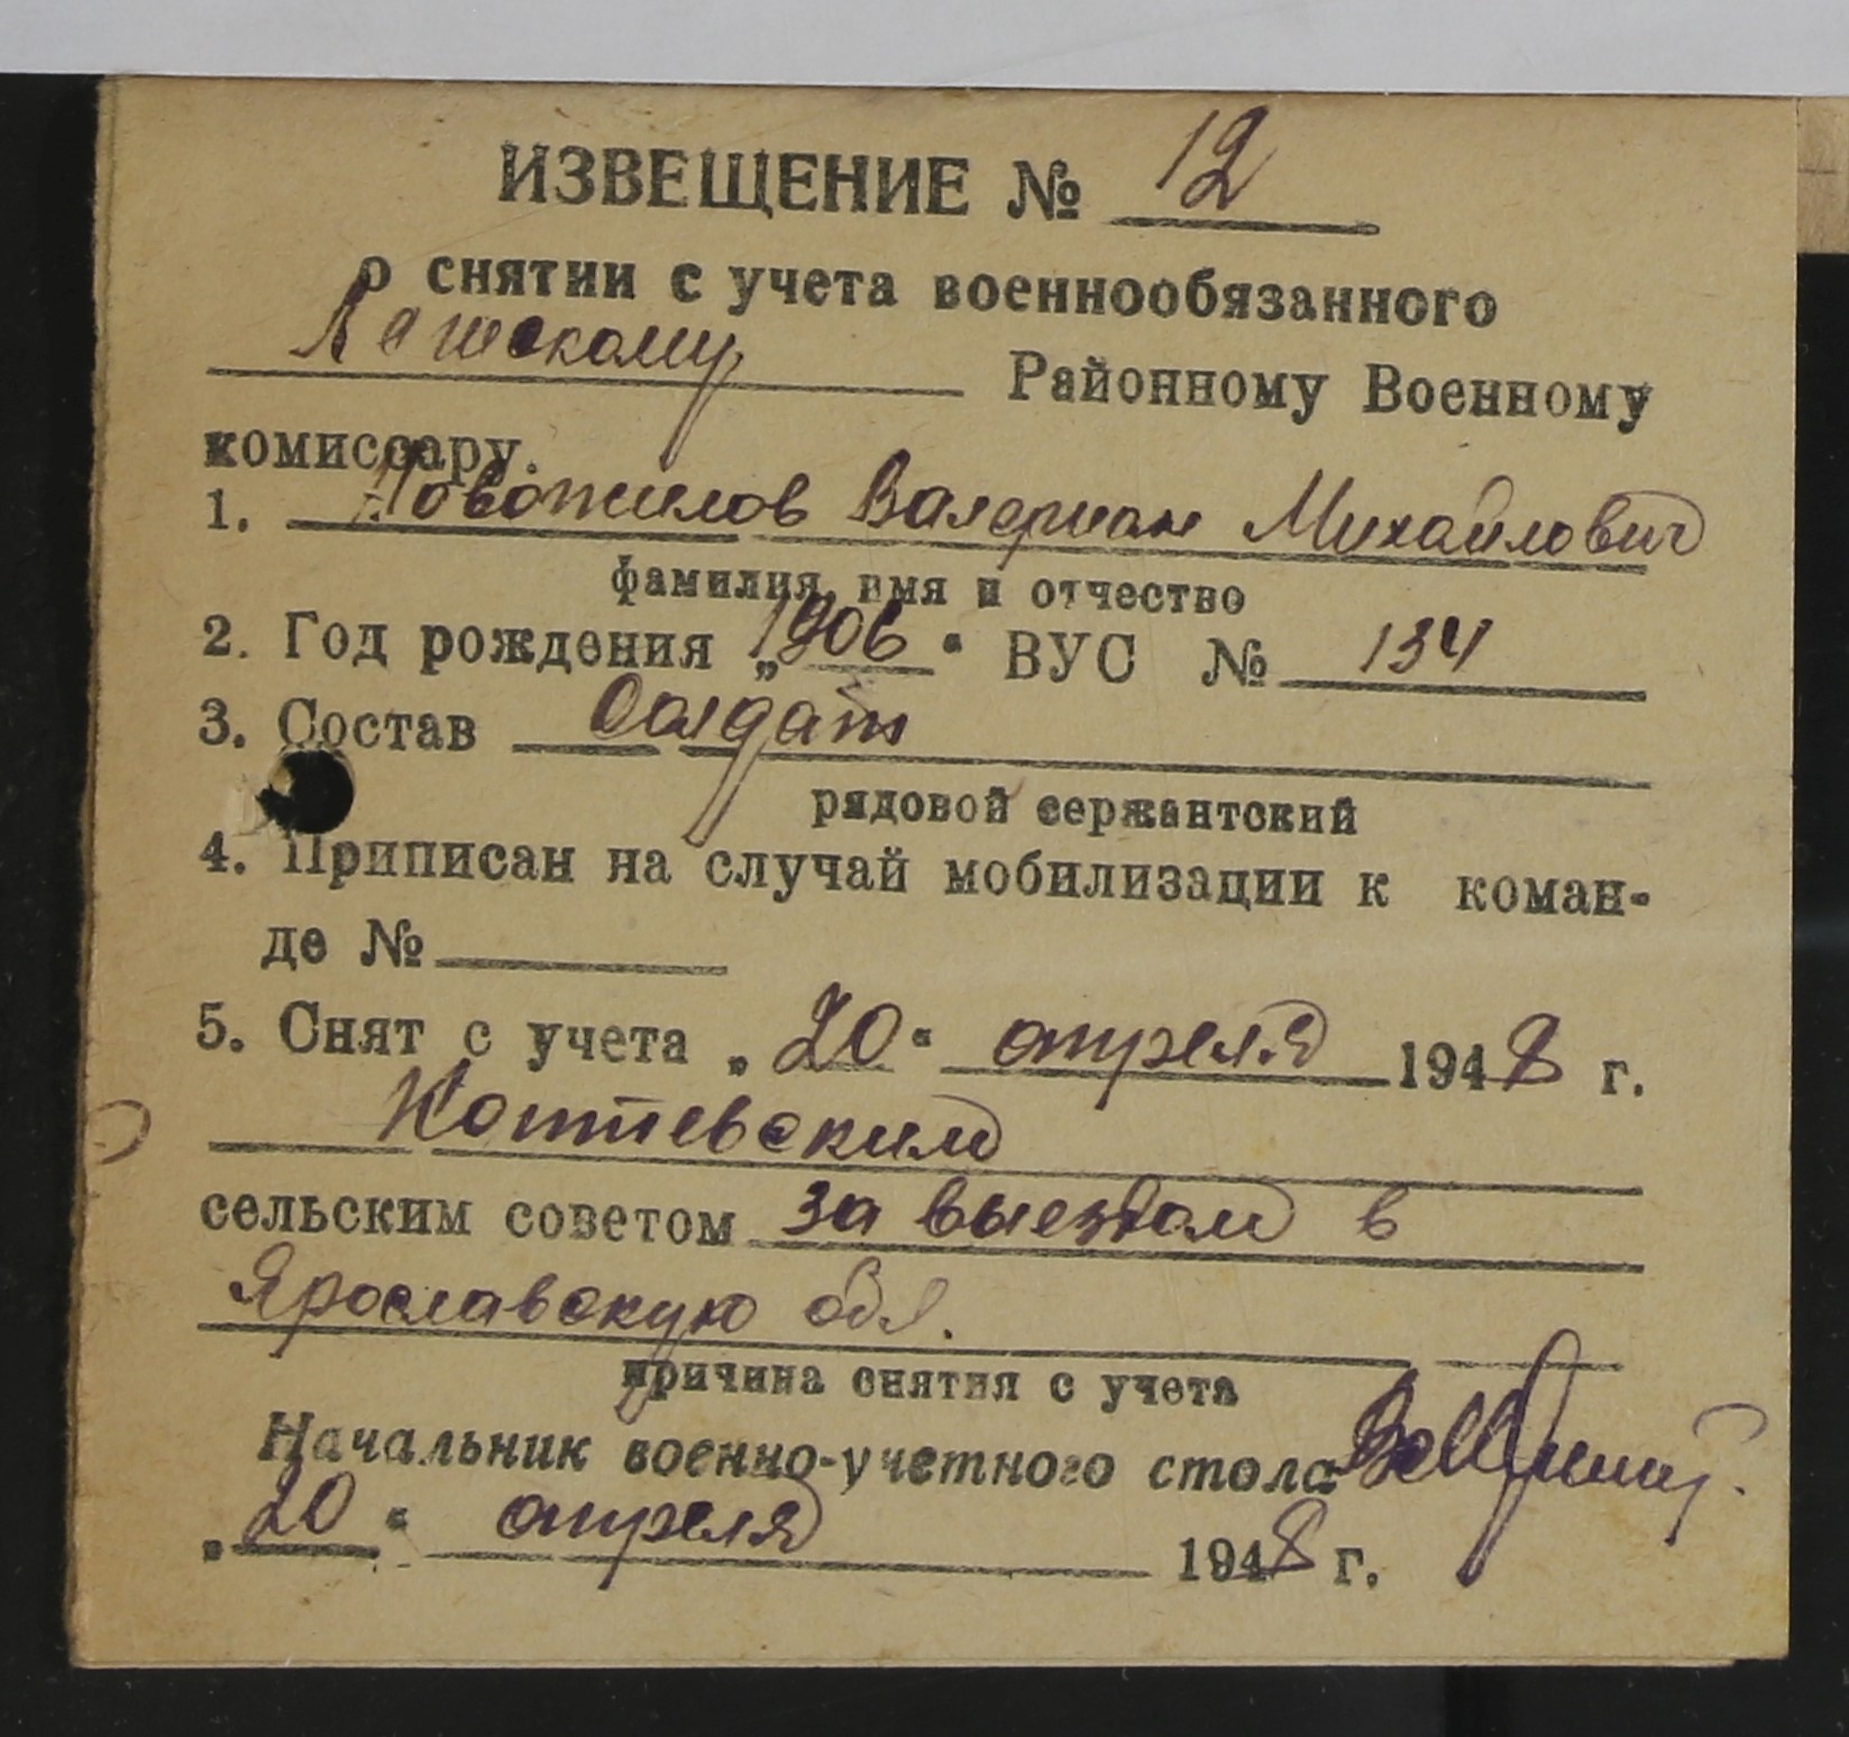 ИЗВЕЩЕНИЕ № 12
о снятии с учета военнообязанного
Районному Военному
комиссару.
1. Новожилов Валериан Михайлович
фамилия, имя и отчество
2. Год рождения „1906“ ВУС № 134
3. Состав Солдат
рядовой сержантский
4. Приписан на случай мобилизации к коман-
де №
5. Снят с учета „20“ апреля 1948 г.
сельским советом за выездом в
Ярославскую обл.
причина снятия с учета
Начальник военно-учетного стола
„20“ апреля 1948 г.